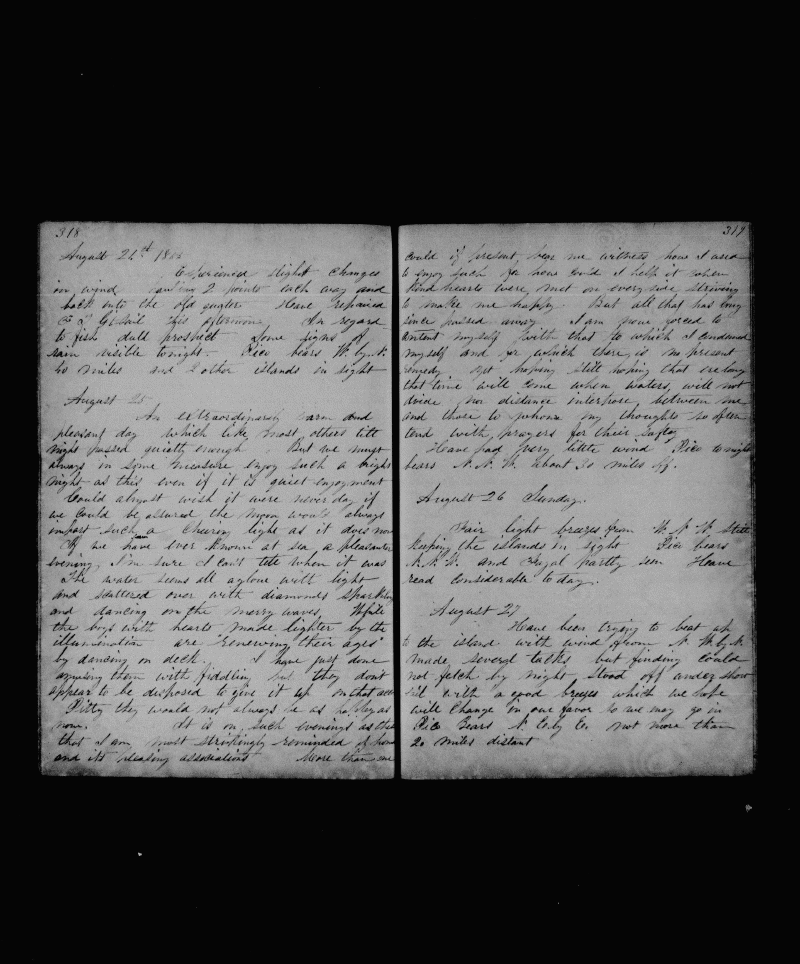 318
August 24th 18
Experienced slight changes
in wind 2 points each way and
back into the old quarter Have repaired
F T G Sail this afternoon In regard
to fish dull prospect Some signs of
rain visible tonight. Pico bears W. by N.
40 miles and 2 other islands in sight
August 25
An extraordinary warm and
pleasant day which like most others till
night passed quietly enough. But we must
always in some measure enjoy such a bright
night as this even if it is quiet enjoyment
Could almost wish it were never day if
we could be assured the moon would always
impart such a cheering light as it does now
If we have ever known at sea a pleasanter
evening, I'm sure I can't tell when it was
The water seems all aglow with light
and scattered over with diamonds sparkling
and dancing on the merry waves, While
the boys with hearts made lighter by the
illumination are "renewing their ages"
by dancing on deck. I have just done
amusing them with fiddling but they don't
appear to be disposed to give it up on that
Pitty they would not always be as happy as
now. It is on such evenings as this
that I am most strikingly reminded of home
and its pleasing associations More than one
319
could if present, bear me witness how I used
to enjoy such for how could I help it when
kind hearts were, met on every side striving
to make me happy. But all that has long
since passed away. I am now forced to
content myself with that to which I condemned
myself and for which there is no present
remedy yet hoping still hoping that ere long
that time will come when waters, will not
divide nor distance interpose, between me
and those to whom my thoughts so often
tend with, prayers for their safety
Have had very little wind Pico to night
bears N. N. W. about 30 miles off.
August 26 Sunday.
Fair light breezes from W. N. W. Still
keeping the islands in sight Pico bears
N. N. W. and Fayal partly seen Have
read considerable to day.
August 27
Have been trying to beat up
to the island with wind from N. W. by N.
made several tacks but finding could
not fetch by night, stood off under short
sail with a good breeze which we hope
will change in our favor so we may go in
Pico Bears N. E by E. not more than
20 miles distant